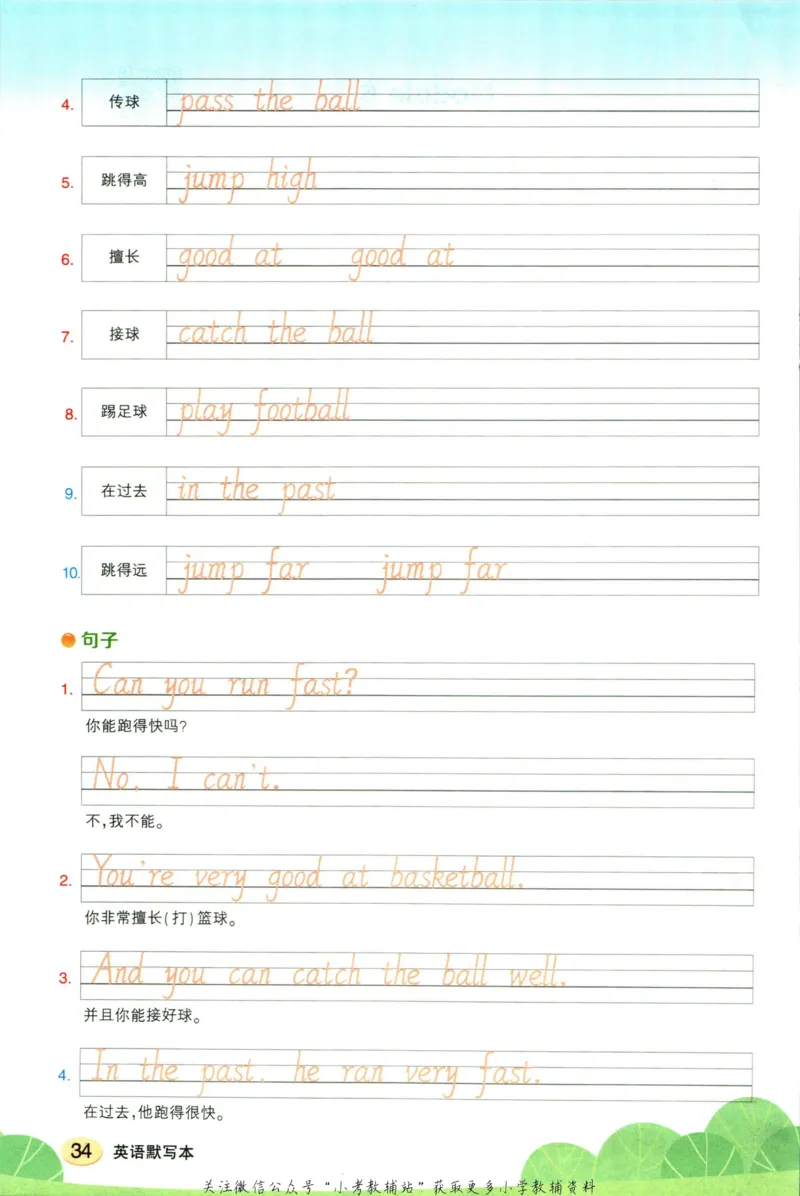 4. 传球 pass the ball
5. 跳得高 jump high
6. 擅长 good at good at
7. 接球 catch the ball
8. 踢足球 play football
9. 在过去 in the past
10. 跳得远 jump far jump far
句子
1. Can you run fast?
你能跑得快吗?
No, I can't.
不,我不能。
2. You're very good at basketball.
你非常擅长(打)篮球。
3. And you can catch the ball well.
并且你能接好球。
4. In the past, he ran very fast.
在过去,他跑得很快。
34 英语默写本
关注微信公众号“小考教辅站”获取更多小学教辅资料